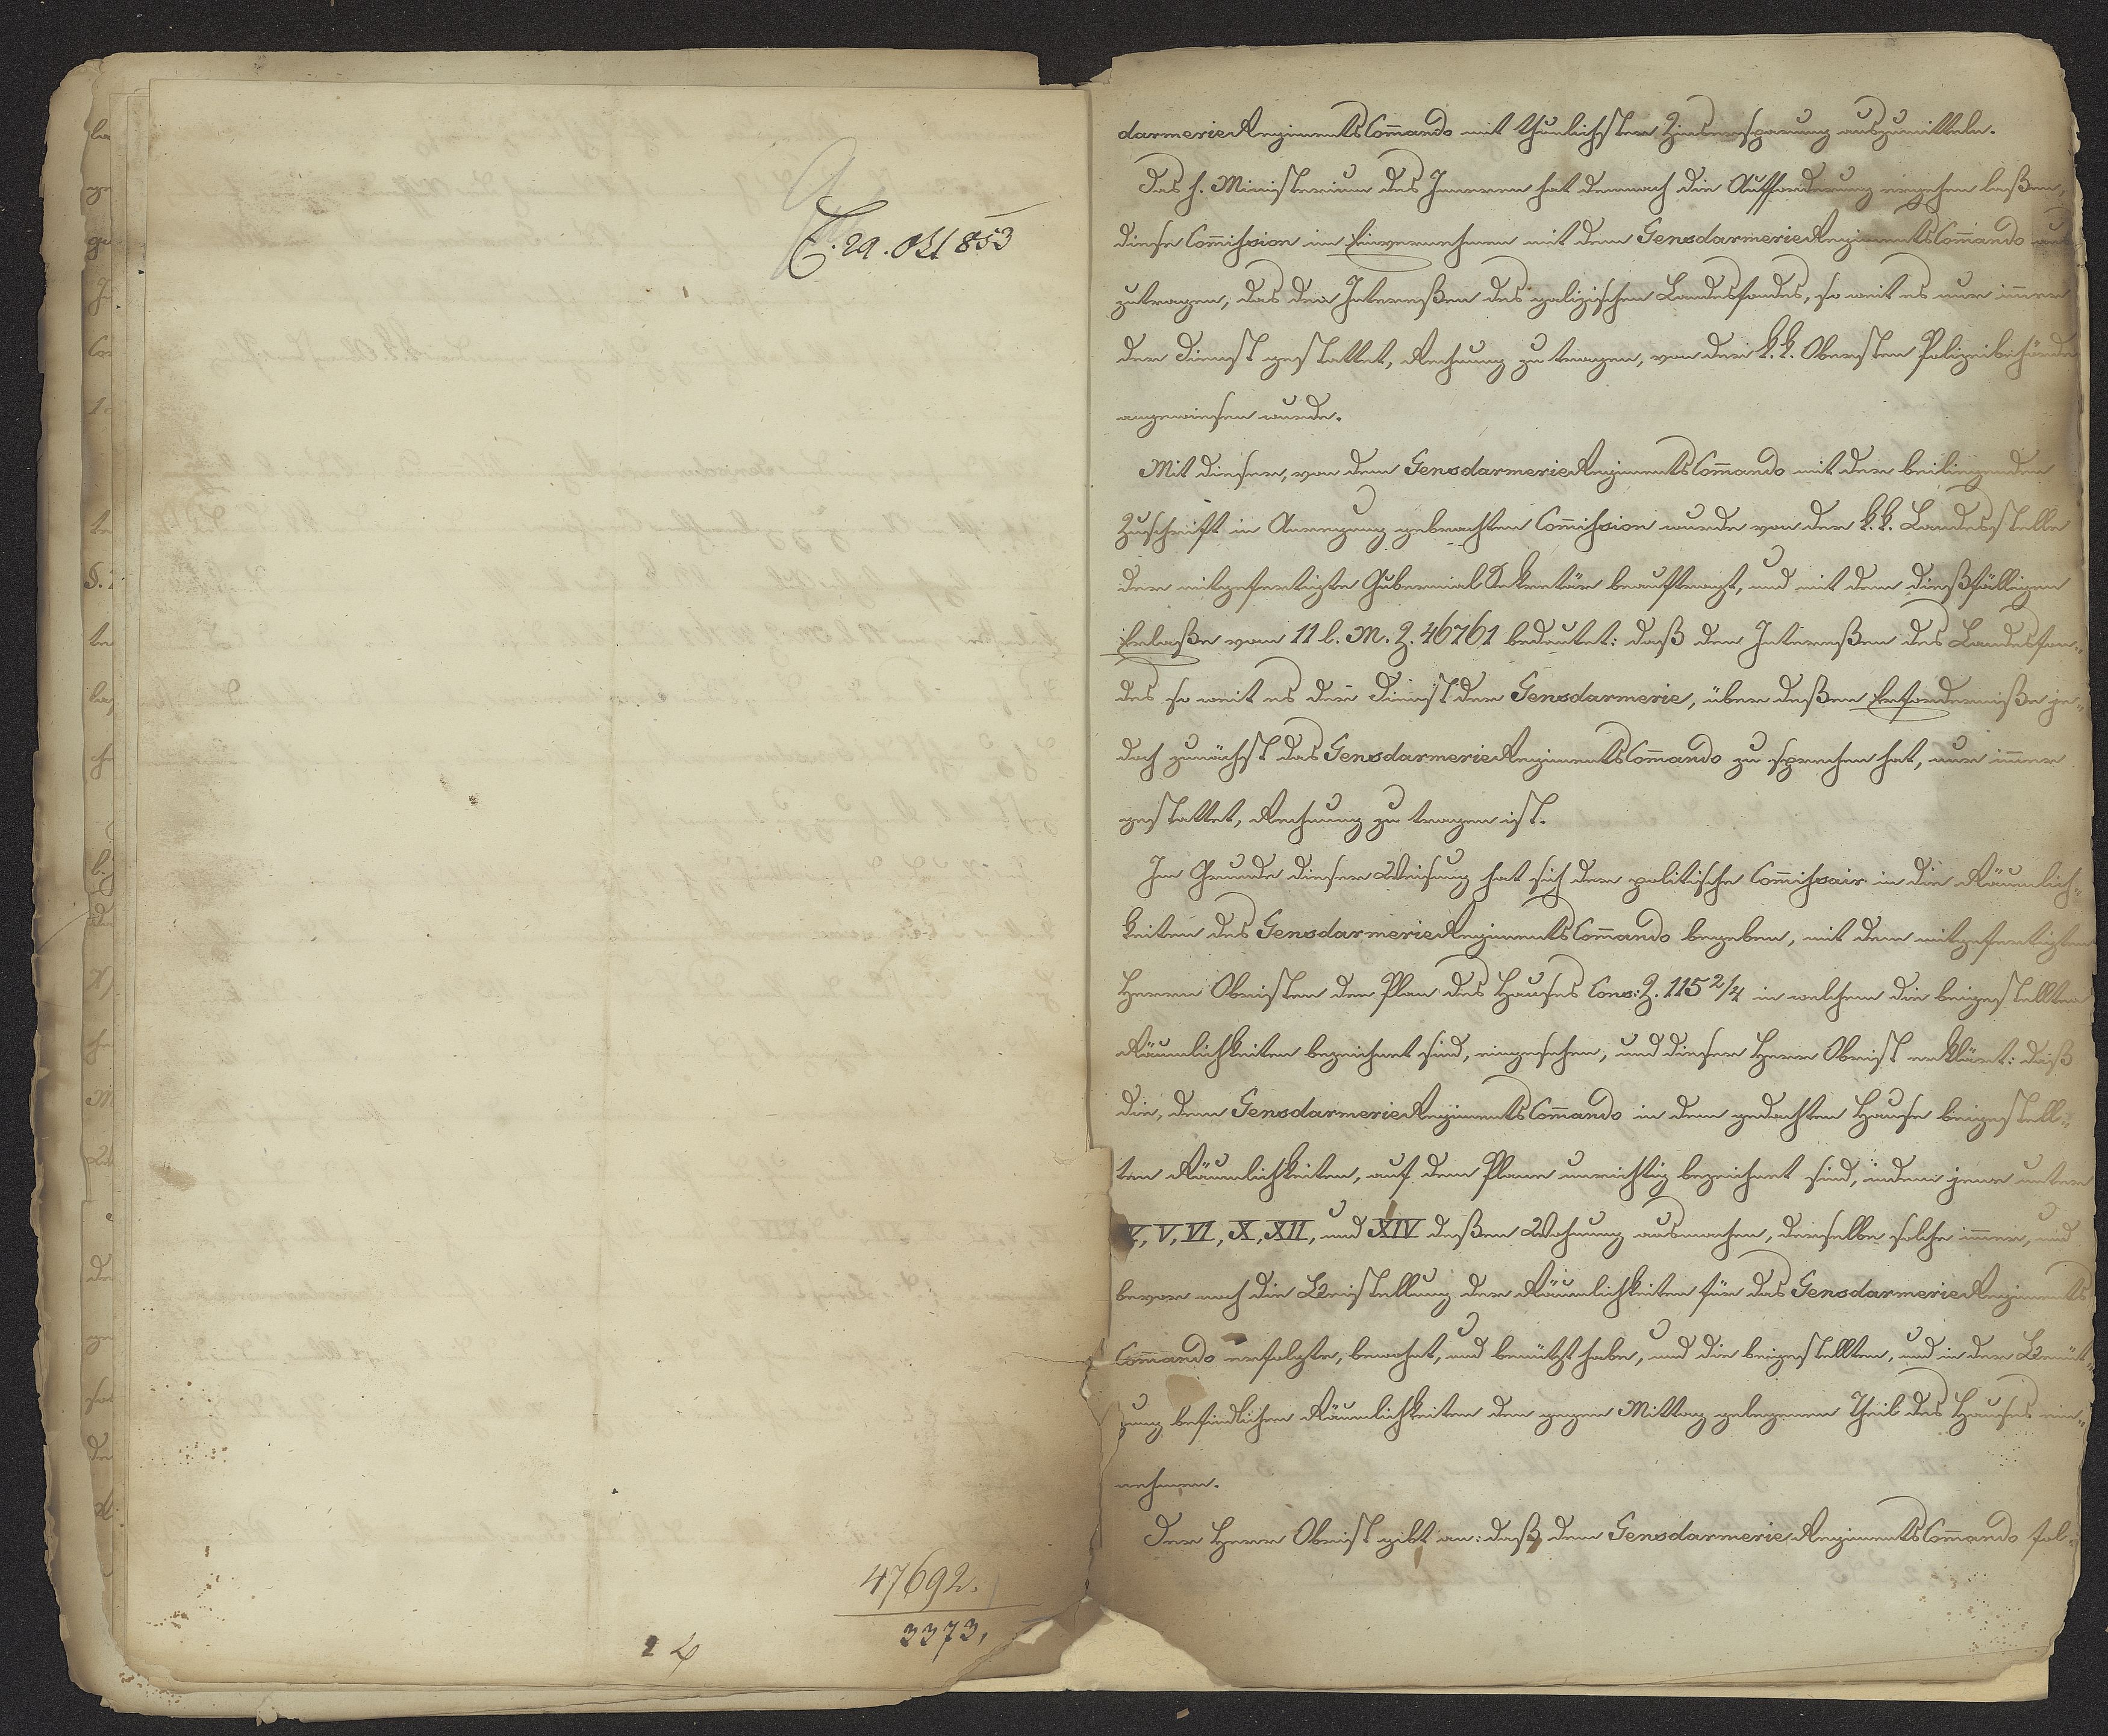 E. 29. Okt 853
47692.
3373.
darmerie Regiments Com̄ando mit thunlichster Zinsersparung auszumitteln.
Das h. Ministerium des Inneren hat demnach die Aufforderung ergehen laßen,
diese Com̄ission im Einvernehmen mit dem Gensdarmerie Regiments Com̄ando
zutragen, das den Intereßen des galizischen Landesfondes, so weit es nur im̄er
der Dienst gestattet, Rechnung zu tragen, von der k. k. Obersten Polizeibehörde
angewiesen wurde.
Mit dieser, von dem Gensdarmerie Regiments Com̄ando mit der beiliegenden
Zuschrift in Anregung gebrachten Com̄ission wurde von der k. k. Landesstelle
der mitgefertigte Gubernial Sekretär beauftragt, und mit dem dießfälligen
Erlaße vom 11 l. M. Z. 46761 bedeutet: daß den Intereßen des Landesfon„
des so weit es der Dienst der Gensdarmerie, über deßen Erforderniße je„
doch zunächst das Gensdarmerie Regiments Com̄ando zu sprechen hat, nur im̄er
gestattet, Rechnung zu tragen ist.
Im Grunde dieser Weisung hat sich der politische Com̄issair in die Räumlich„
keiten des Gensdarmerie Regiments Com̄ando begeben, mit dem mitgefertigten
Herrn Obristen den Plan des Hauses Cons: Z. 115 2/4 in welchem die beigestellten
Räumlichkeiten bezeichnet sind, eingesehen, und dieser Herr Obrist erklärt: daß
die, dem Gensdarmerie Regiments Com̄ando in dem gedachten Hause beigestell„
ten Räumlichkeiten, auf dem Plane unrichtig bezeichnet sind, indem jene unter
V, VI, X, XII, und XIV deßen Wohnung ausmachen, derselbe solche im̄er, und
bevor noch die Beistellung der Räumlichkeiten für das Gensdarmerie Regiments
Com̄ando erfolgte, bewohnt, und benützt habe, und die beigestellten, und in der Benüt„
zung befindlichen Räumlichkeiten den gegen Mittag gelegenen Theil des Hauses ein„
nehmen.
Der Herr Obrist gibt an: daß dem Gensdarmerie Regiments Com̄ando fol„